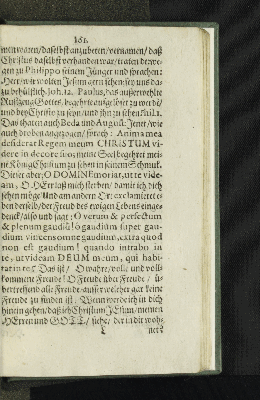 161.
men waren/ daselbst anzubeten/ vernamen/ daß
Christus daselbst verhanden war/ traten derwe-
gen zu Philippo seinem Jünger und sprachen:
Herr/ wir wolten Jesum gern sehen/ sey uns da-
zu behülfflich. Joh. 12. Paulus, das ausserwehlte
Rüstzeug Gottes, begehrte auffgelöset zu werdē/
und bey Christo zu seyn/ und ihn zu sehen. Phil. 1.
Das thaten auch Beda und August. Jener/ wie
auch droben angezogen/ sprach: Anima mea
desiderat Regem meum CHRISTUM vi-
dere in decore suo; meine Seel begehret mei-
nē König Christum zu sehen in seinem Schmuck.
Dieser aber; O DOMINE moriar, ut te vide-
am, O HErr laß mich sterben/ damit ich dich
sehen möge! Und am andern Ort exclamiret e-
ben derselb/ der Freude des ewigen Lebens einge-
denck/ also und sagt: O verum & perfectum
& plenum gaudiū! ô gaudium super gau-
dium vincens omne gaudium, extra quod
non est gaudium! quando intrabo in
te, ut videam DEUM meum, qui habi-
tat in te? Das ist/ O wahre/ volle und voll-
kommene Freude! O Freude über Freude/ ü-
bertreffend alle Freude/ ausser welcher gar keine
Freude zu finden ist! Wenn werde ich in dich
hinein gehen/ daß ich Christum JEsum/ meinen
HErren und GOTT/ siehe/ der in dir woh-
L
net?